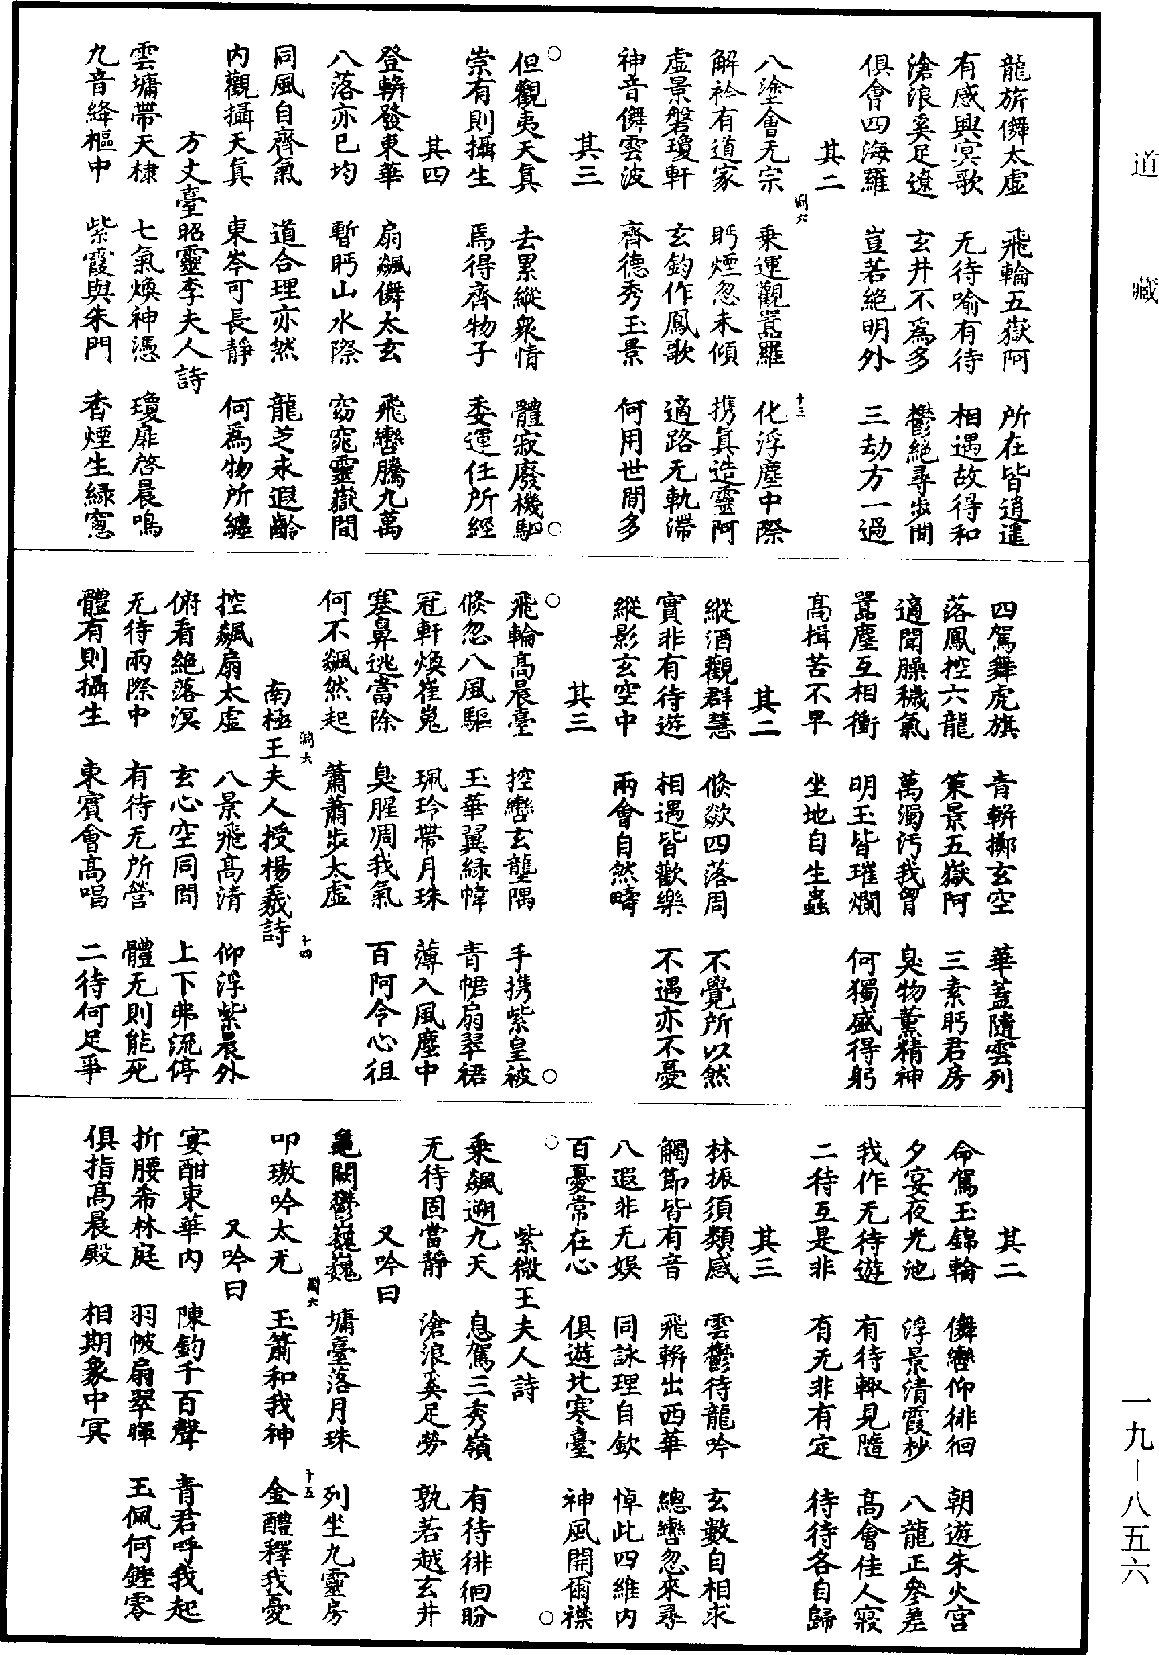 龍旂儛太虛　飛輪五嶽阿　所在皆逍遣
有感興冥歌　无待喻有待　相遇故得和
滄浪奚足遼　玄井不爲多　鬱絕尋步間
俱會四海羅　豈若絕明外　三劫方一過
其二
八塗會无宗　乘運觀囂羅　化浮塵中際
解衿有道家　眄煙忽未傾　携真造靈阿
虛景磐瓊軒　玄鈞作鳳歌　適路无軌滯
神音儛雲波　齊德秀玉景　何用世間多
其三
但觀夷天真　去累縱衆情　體寂廢機駟
崇有則攝生　焉得齊物子　委運任所經
其四
登軿發東華　扇飆儛太玄　飛轡騰九萬
八落亦已均　暫眄山水際　窈窕靈嶽間
同風自齊氣　道合理亦然　龍芝永遐齡
內觀攝天真　東岑可長靜　何爲物所纏
方丈臺昭靈李夫人詩
雲墉帶天棣　七氣煥神憑　瓊扉啓晨鳴
九音絳樞中　紫霞與朱門　香煙生綠窻
四駕舞虎旗　青軿擲玄空　華蓋隨雲列
落鳳控六龍　策景五嶽阿　三素眄君房
適聞臊穢氣　萬濁污我胷　臭物薰精神
囂塵互相衝　明玉皆璀爛　何獨盛得躬
高揖苦不早　坐地自生蟲
其二
縱酒觀群慧　倏欻四落周　不覺所以然
實非有待遊　相遇皆歡樂　不遇亦不憂
縱影玄空中　兩會自然疇
其三
飛輪高晨臺　控轡玄壟隅　手携紫皇袯
倏忽八風驅　玉華翼綠幃　青帬扇翠裙
冠軒煥崔嵬　珮玲帶月珠　薄入風塵中
塞鼻逃當除　臭腥凋我氣　百阿令心徂
何不飆然起　蕭蕭步太虛
南極王夫人授楊羲詩
控飆扇太虛　八景飛高清　仰浮紫晨外
俯看絕落溟　玄心空同間　上下弗流停
无待兩際中　有待无所營　體无則能死
體有則攝生　東賓會高唱　二待何足爭
其二
命駕玉錦輪　儛轡仰徘徊　朝遊朱火宮
夕宴夜光池　浮景清霞杪　八龍正參差
我作无待遊　有待輙見隨　高會佳人寢
二待互是非　有无非有定　待待各自歸
其三
林振須類感　雲鬱待龍吟　玄數自相求
觸節皆有音　飛軿出西華　總轡忽來尋
八遐非无娛　同詠理自欽　悼此四維內
百憂常在心　俱遊北寒臺　神風開爾襟
紫微王夫人詩
乘飆遡九天　息駕三秀嶺　有待徘徊盼
无待固當靜　滄浪奚足勞　孰若越玄井
又吟曰
龜闕鬱巍巍　墉臺落月珠　列坐九靈房
叩璈吟太无　玉簫和我神　金醴釋我憂
又吟曰
宴酣東華內　陳鈞千百聲　青君呼我起
折腰希林庭　羽帔扇翠暉　玉佩何鏗零
俱指高晨殿　相期象中冥
道藏
一九—八五六